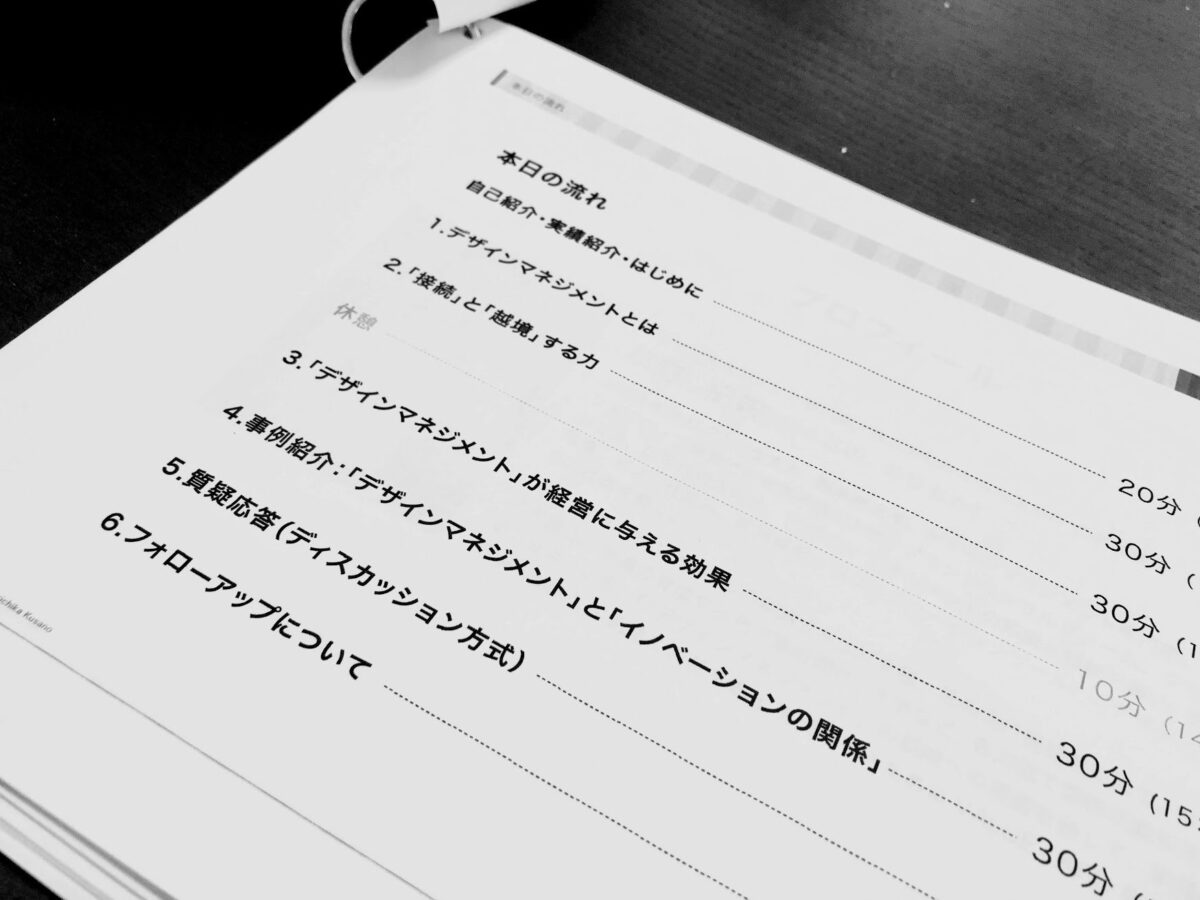 本日の流れ
本日の流れ
自己紹介・実績紹介・はじめに 20分 (
1.デザインマネジメントとは 30分 (
2.「接続」と「越境」する力 30分 (1
休憩 10分 (14
3.「デザインマネジメント」が経営に与える効果 30分 (15
4.事例紹介:「デザインマネジメント」と「イノベーションの関係」 30分 (
5.質疑応答(ディスカッション方式)
6.フォローアップについて
Kusano